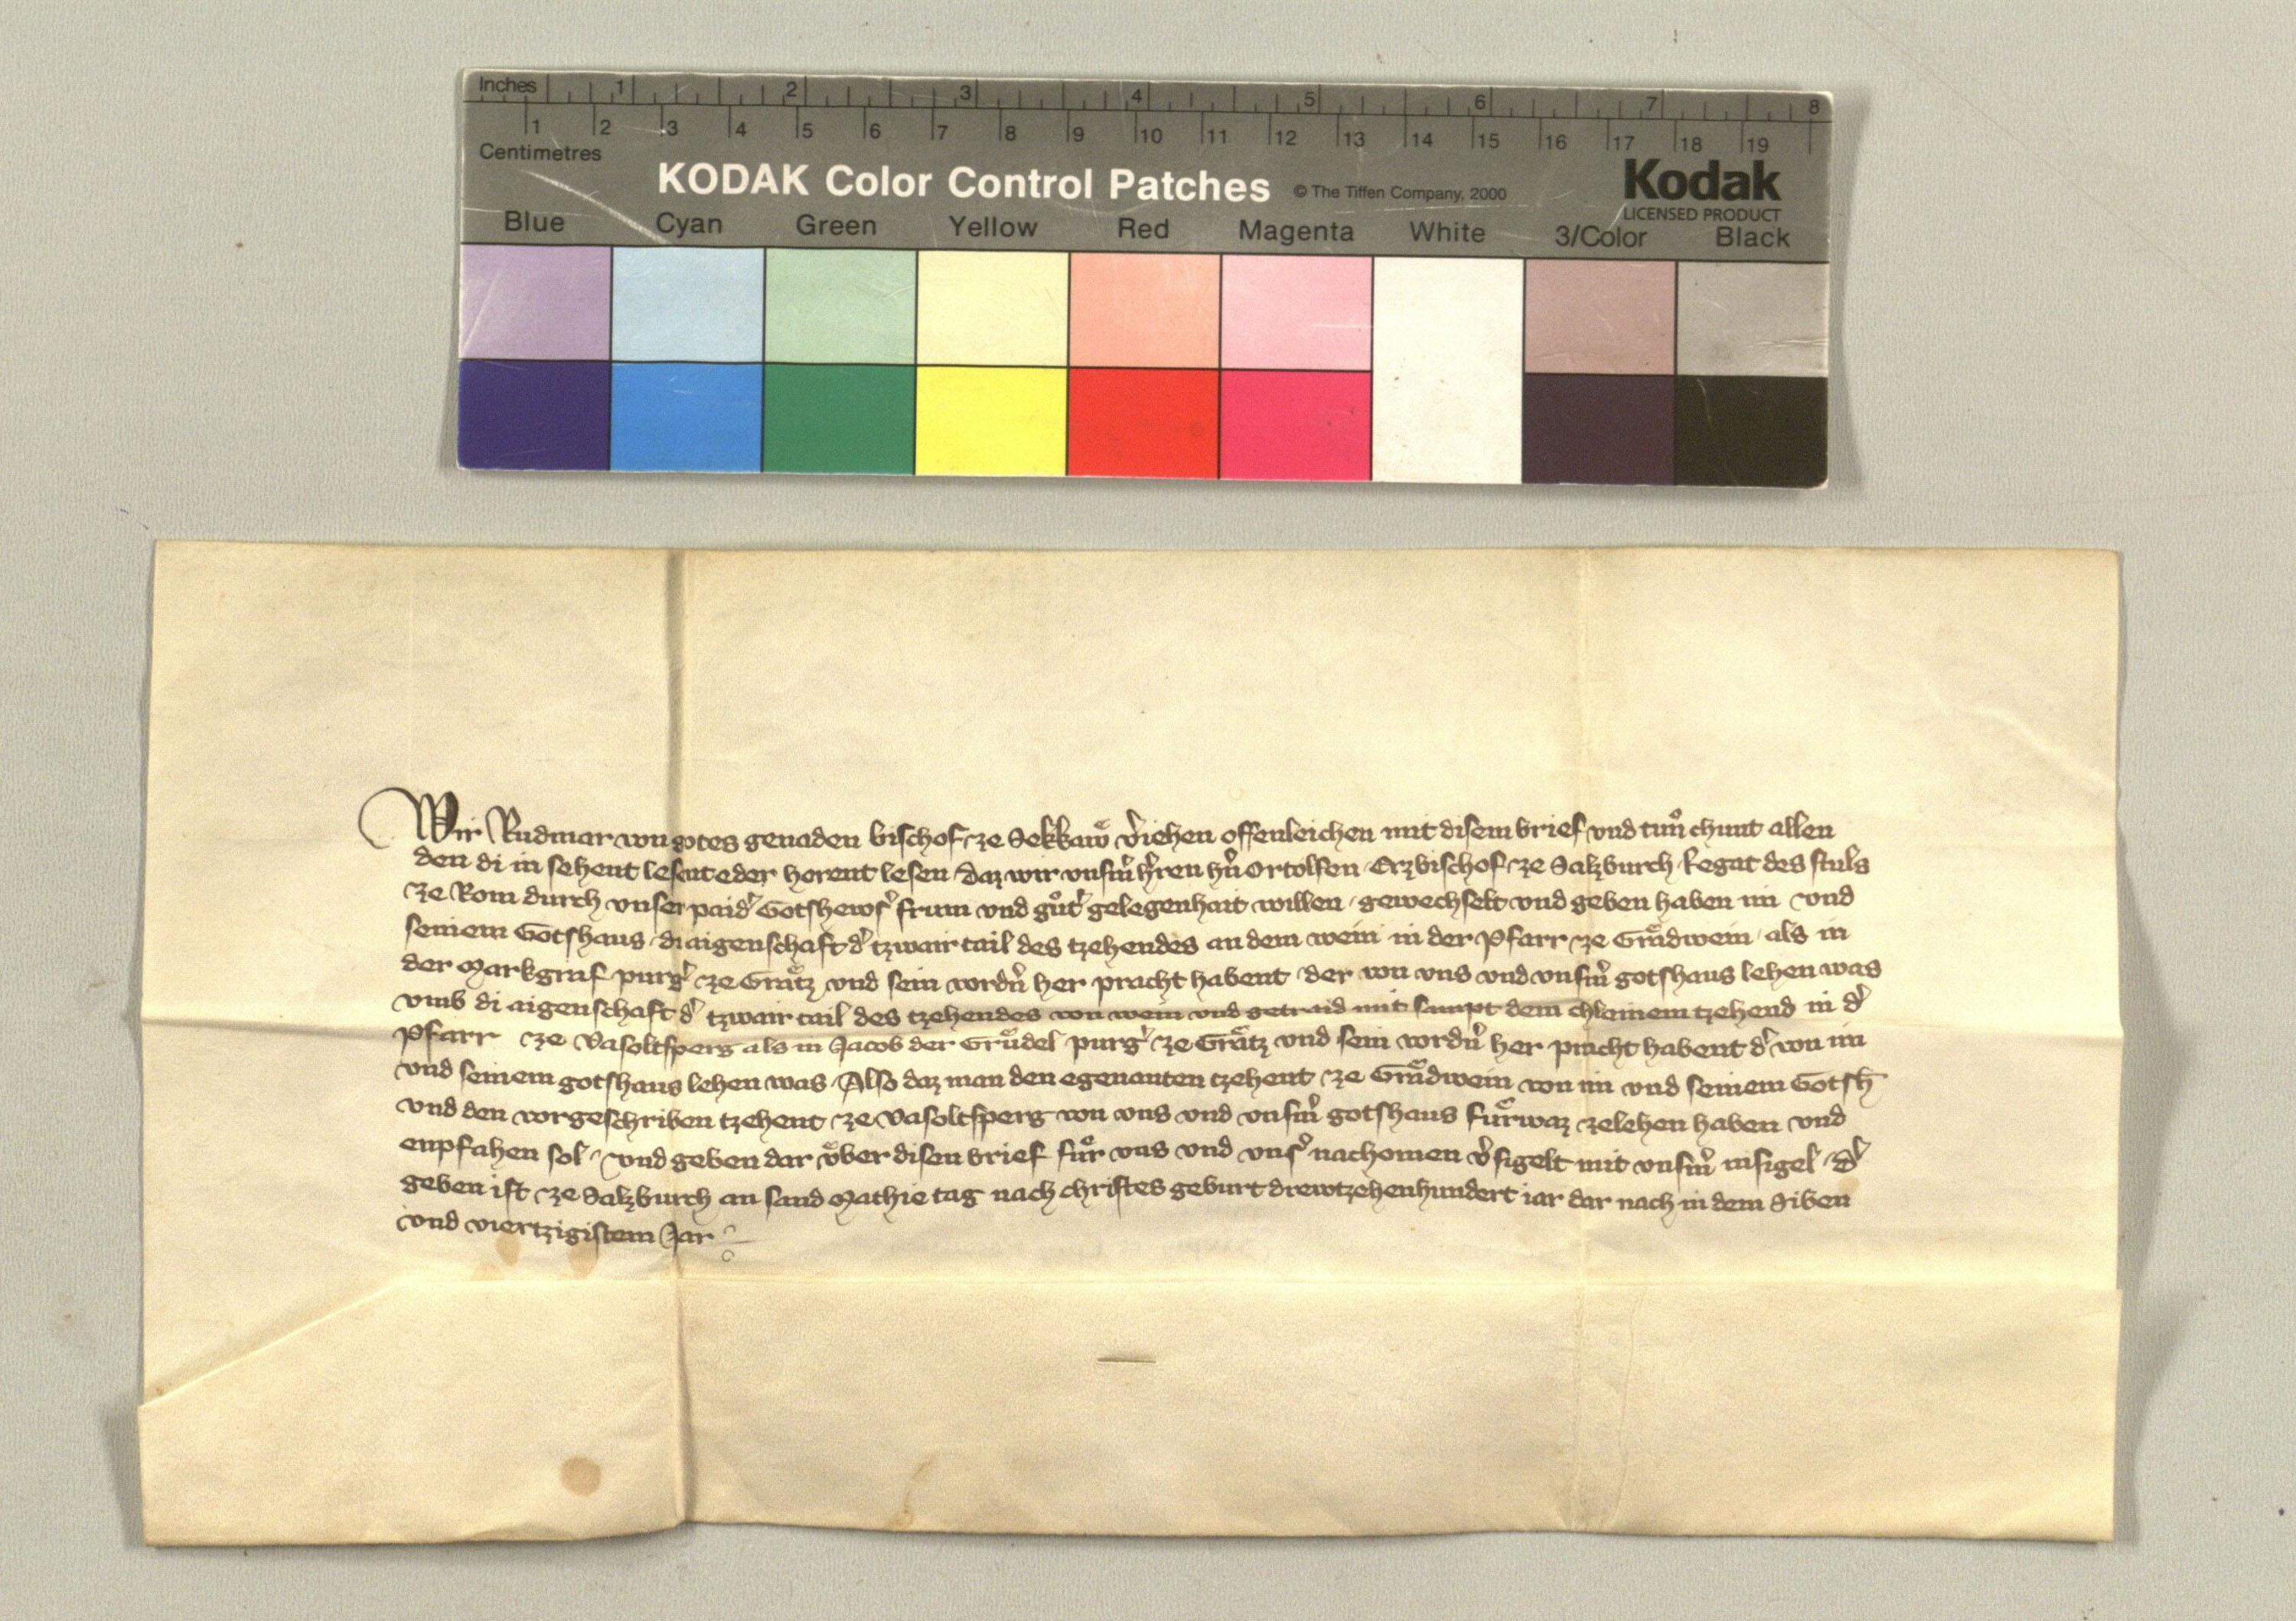 Inches 1 2 3 4 5 6 7 8
1 2 3 4 5 6 7 8 9 10 11 12 13 14 15 16 17 18 19
Centimetres
KODAK Color Control Patches © The Tiffen Company, 2000 Kodak
LICENSED PRODUCT
Blue Cyan Green Yellow Red Magenta White 3/Color Black
Wir Rudmar von gotes genaden bischof ze Sekkaw v̾iehen offenleichen mit disem brief vnd tun chunt allen
den di in sehent lesent oder horent lesen daz wir vnsm̾ h̾ren hn̾ Ortolfen Erzbischof ze Salzburch Legat des stuls
ze Rom durch vnser paid̾ Gotshews̾ frum vnd gůt̾ gelegenhait willen gewechselt vnd geben haben im vnd
seinem Gotshaus di aigenschaft d̾ tzwair tail des tzehendes an dem wein in der Pfarr ze Grͤadwein als in
der Markgraf purg̾ ze Grͤatz vnd sein vordn̾ her pracht habent der von vns vnd vnsm̾ gotshaus lehen was
vmb di aigenschaft d̾ tzwair tail des tzehendes von wein vnd getraid mit sampt dem chleinem tzehend in d̾
Pfarr ze Vasoltsperg als in Jacob der Grͤudel purg̾ ze Grͤatz vnd sein vordn̾ her pracht habent d̾ von im
vnd seinem gotshaus lehen was Also daz man den egenanten tzehent ze Grͤadwein von im vnd seinem Gotsh̄
vnd den vorgeschriben tzehent ze Vasoltsperg von vns vnd vnsm̾ gotshaus fürwaz zelehen haben vnd
enpfahen sol vnd geben dar vͤber disen brief fůr vns vnd vns̾ nachomen v̾sigelt mit vnsm̾ insigel d̾
geben ist ze Salzburch an sand Mathie tag nach christes geburt drewtzehenhundert iar dar nach in dem Siben
vnd viertzigistem Jar